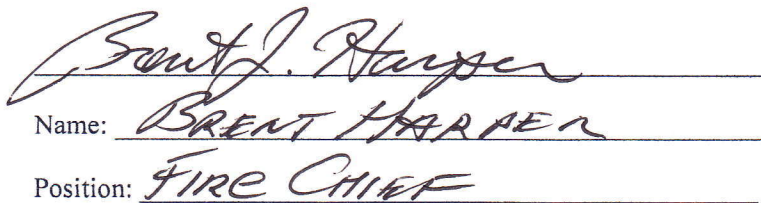 Brent J. Harper
Name: BRENT HARPER
Position: FIRE CHIEF